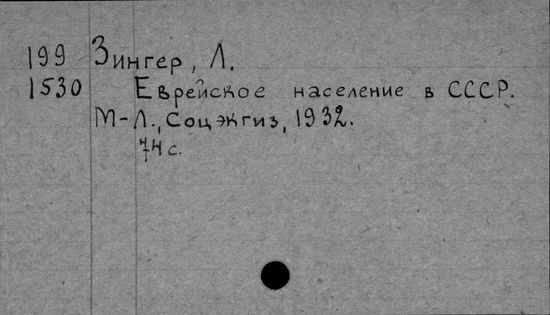 199 Зингер, Л.
1530 Еврейское население в СССР.
М-Л., Соцэкгиз, 1932.
74 с.